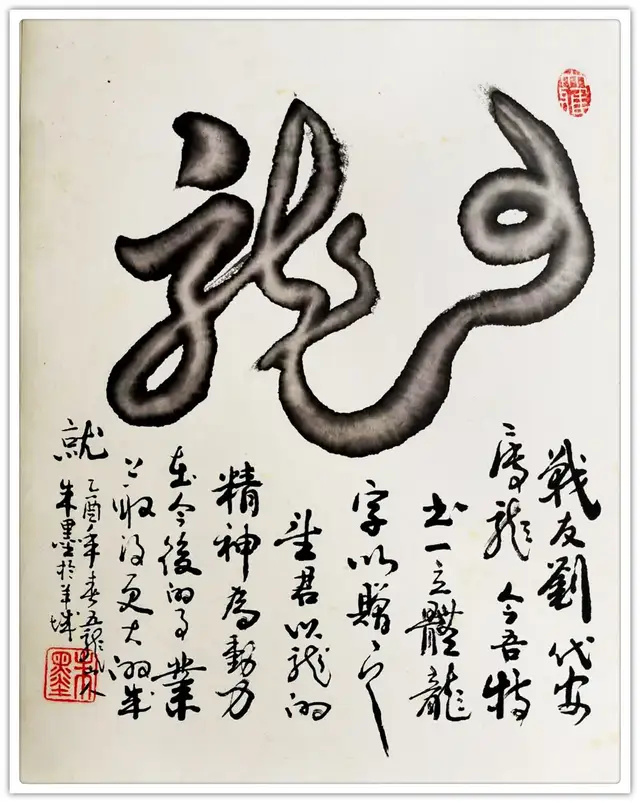 龍
戰友劉代安
屬龍 今吾特
书一立體龍
字以贈之
望君以龍的
精神為動力
在今後的事業
上收得更大的成
就
乙酉年春五龍山人
朱墨於羊城
朱墨